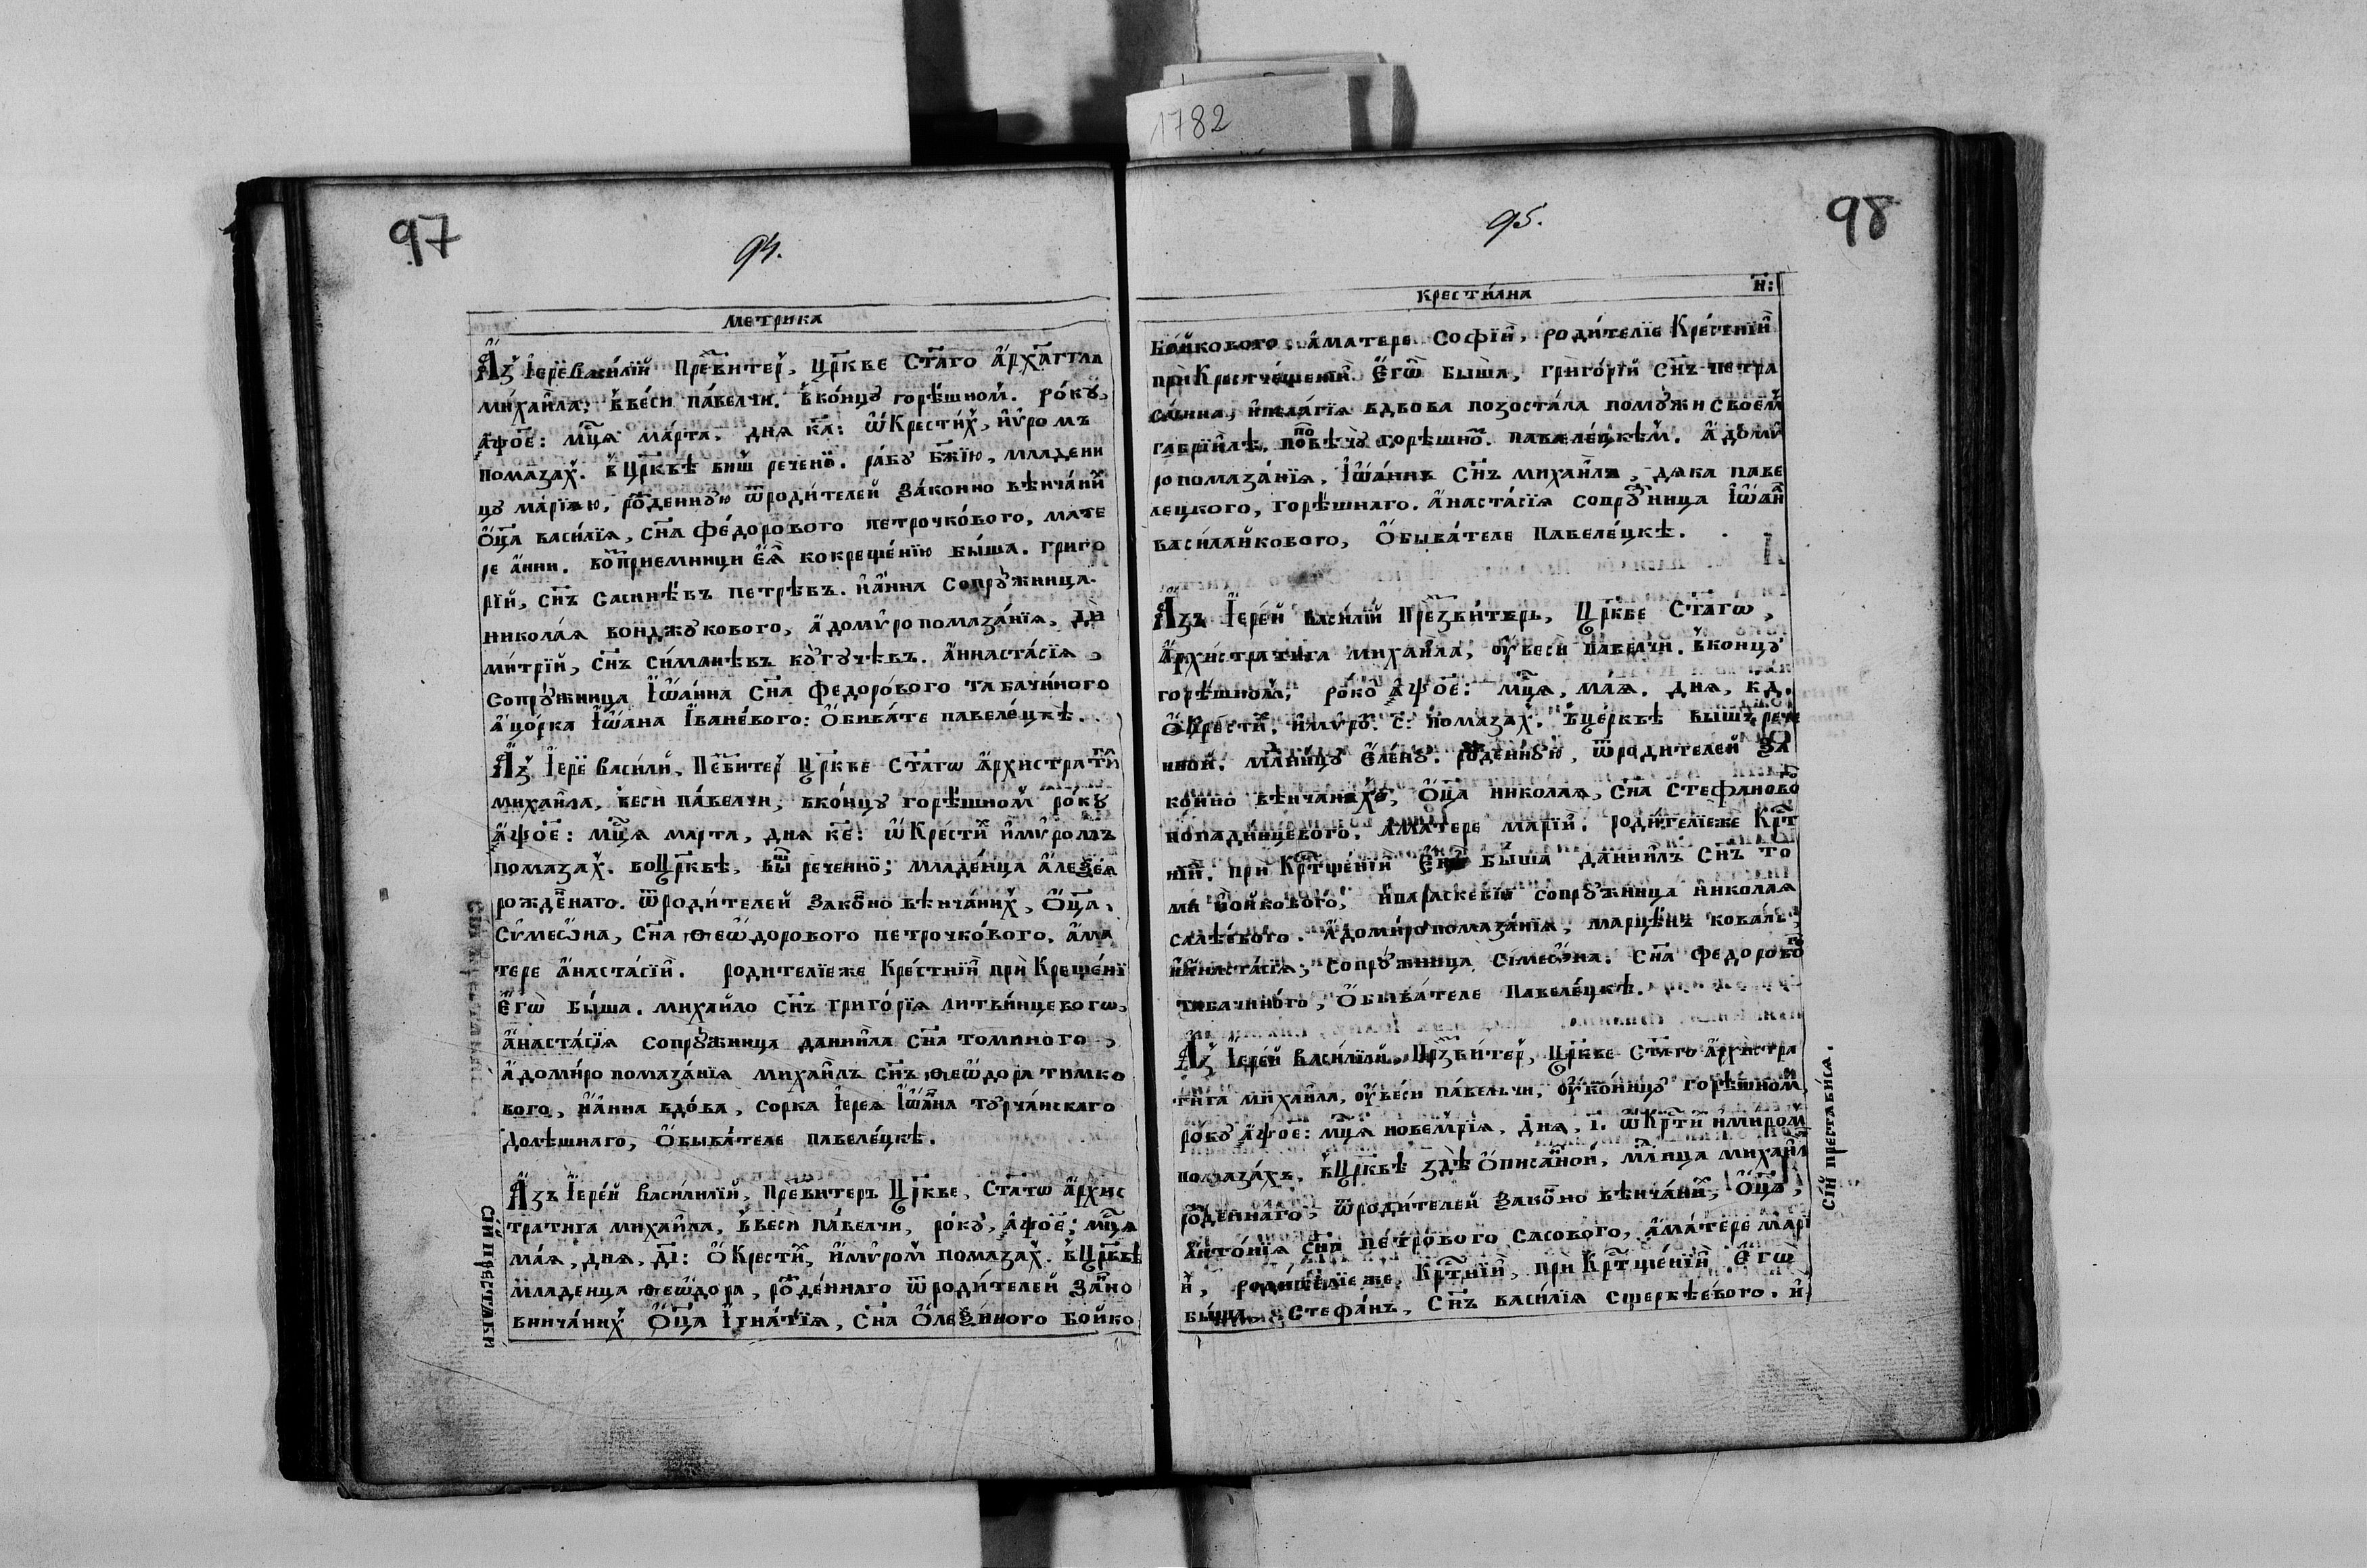 1782
97
94.
Метрика
Азъ Їерей Василїй Превитеръ, Цркве Стаго Архаггла
михаила, в веси павелчи. в концу горѣшномъ. року,
҂аѱое: мця марта, дня ка: ѡкрестихъ, и мѵромъ
помазахъ. в Црквѣ виш реченой. рабу Бжїю, младени
цу марїю, рожденную ѿ родителей законно вѣнчаних
Оца василїя, сна федорового петрочкового, мате
ре анни. воприемници еѧ ко крещенїю быша. григо
рїй, снъ саснѣвъ петрѣвъ. и анна сопружница
николая вонджукового, а до мѵропомазанїя, ди
митрїй, снъ симанѣвъ кугучѣвъ. анастасїя,
сопружница Їѡанна сна федорового табачиного
а цорка Їѡана Їваневого: Обивате павелецкѣ.
Азъ Їерей василий, Певитеръ Цркве Стагѡ архистрати
михаила, веси павелчи, в концу горѣшномъ року
҂аѱое: мця марта, дня ке: ѡкрестих и мѵромъ
помазахъ. во Црквѣ, выш реченной; младенца алеѯея
рожденнаго. ѿ родителей законно вѣнчаних, Оца,
Сѵмеѡна, сна ѳеѡдорового петрочкового. а ма
тере анастасїи. родителїеже Крестнїи при Крещенї
егѡ быша. михайло снъ григорїя литвинцевогѡ,
анастасїя сопружница даниила сна томиного,
а до миропомазанїя михаилъ снъ ѳеѡдора тимко
вого, и анна вдова, сорка Їерея Їѡанна турчанскаго
долѣшнаго, Обывателе павелецкѣ.
Азъ Їерей василїй, превитеръ Цркве, Стагѡ архис
тратига михаила, в веси павелчи, року, ҂аѱое; мця
мая, дня, дı: Окрестих, и мѵромъ помазах. в Црквѣ
младенца ѳеѡдора, рожденнаго ѿ родителей закно
винчаних Оца Їгнатїя, сна Олеѯиного Бойко
сїй престави
98
95.
Крестилна
н:
Бойкового. а матере Софїи, родителїе Крестнїи
при Крестчещенїи егѡ быша, григорїй снъ петра
и пелагїя вдова позостала по мужи своемъ
гаврїилѣ, горѣшно. павелецкѣм. а до мѵ
ропомазанїя, Їѡаннъ снъ михаила, дяка паве
лецкого, горѣшнаго. анастасїя сопружница Їѡан
василайкового, Обывателе Павелецкѣ.
Азъ Їерей василїй Презвитерь, Цркве Стагѡ,
архистратига михаила, ѹ веси павелчи. в концу
горѣшномъ, року ҂аѱое: мця, мая. дня, кд.
Окрестих, и мѵро с: помазах. в церквѣ вышъ рече
нной, младницу елену. рожденную, ѿ родителей за
конно вѣнчаныхъ, Оца николая, сна Стефаново
попадинцевого. а матере марїи. родителїеже Крт
нїи. при Кртщенїи Еи быша даниилъ снъ то
ми войкового, и параскевїя сопружница николая
салѣевого. а до миропомазанїя, марцѣнъ коваль,
и анастасїя, сопружница Сїмеѡна. сна федорово
табачиного, Обывателе Павелецкѣ.
Азъ Їерей василїй, Прзвитеръ, Цркве Стаго архистра
тига михаила, ѹ веси павельчи, ѹ концу горѣшномъ,
року ҂аѱое: мця новемрїя, дня, ı. ѡкртих и миромъ
помазахъ. в Црквѣ здѣ описанной, млнца михаил
рожденнаго, ѿ родителей законно вѣнчаних, Оца,
антонїя сна петрового сасового, а матере марї
и, родителїеже, Кртнїи, при Кртщенїи егѡ
быша, Стефанъ, снъ василїя смеркѣевого. и
Сїй преставися.